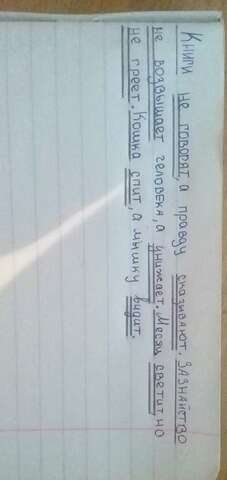 Книги не говорят, а правду сказывают. Зазнайство
не возвышает человека, а унижает. Месяц светит, но
не греет. Кошка спит, а мышку видит.